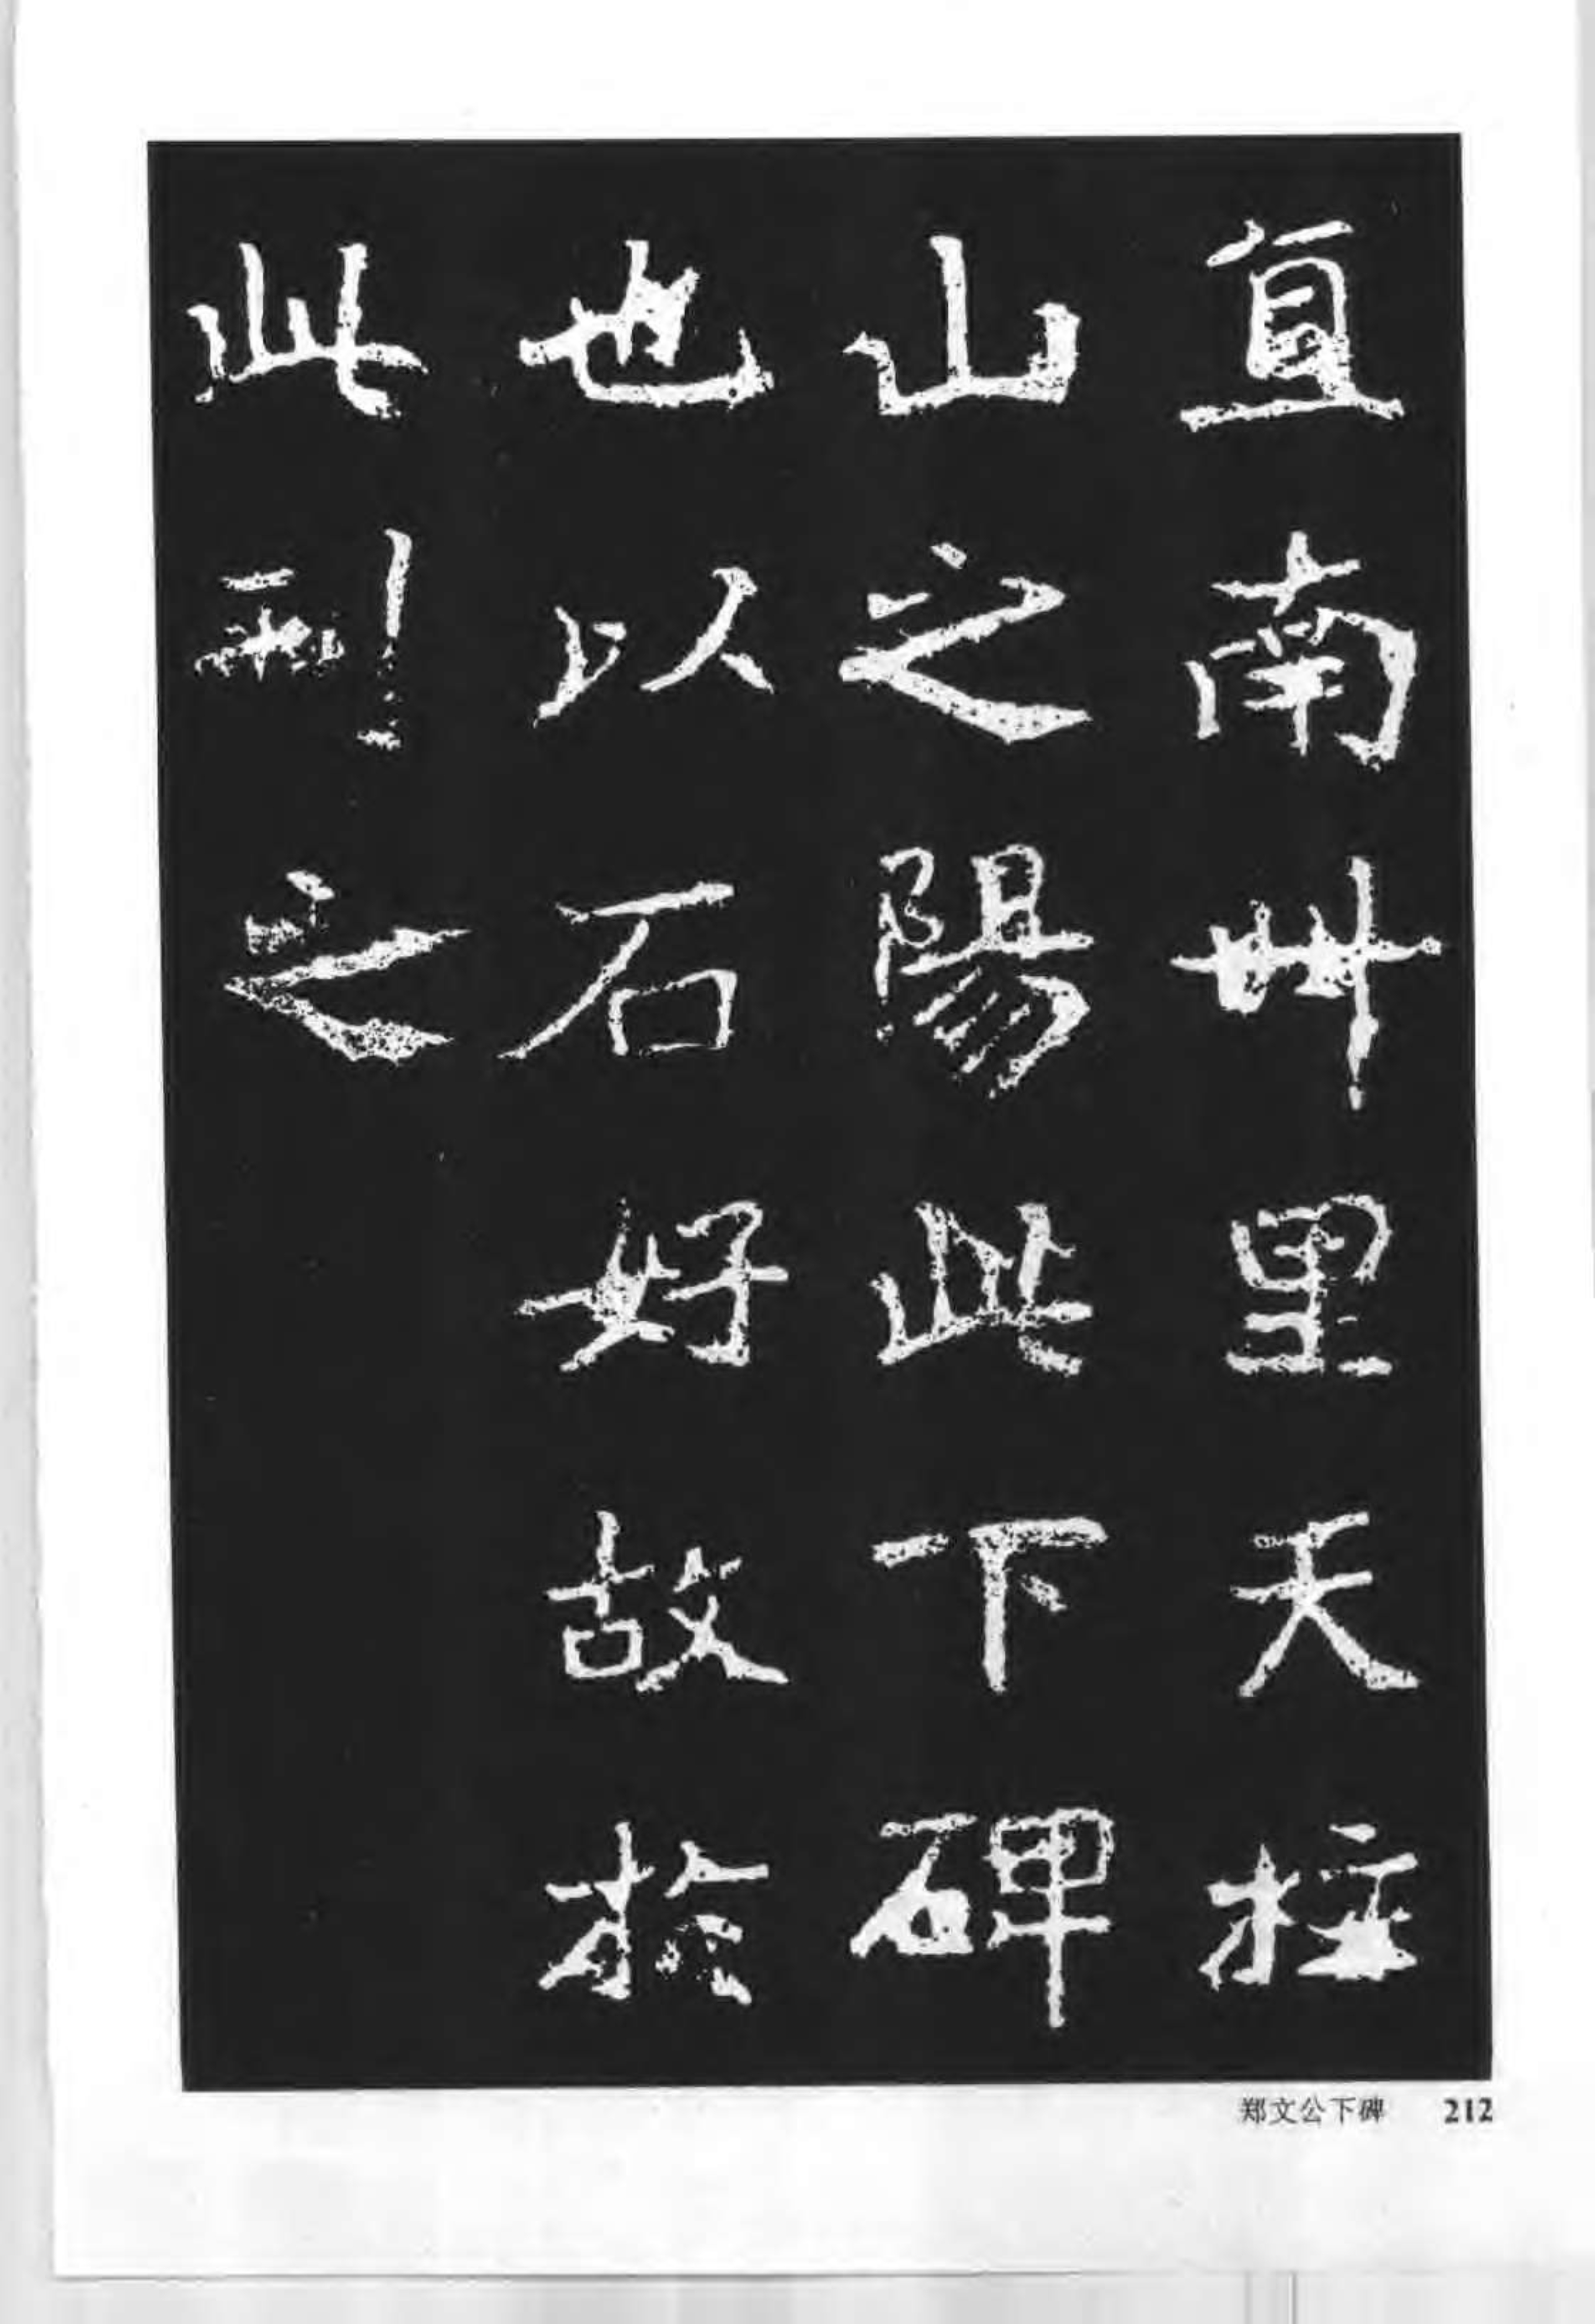 直南卌里天柱
山之陽此下碑
也以石好故於
此刊之
郑文公下碑 212